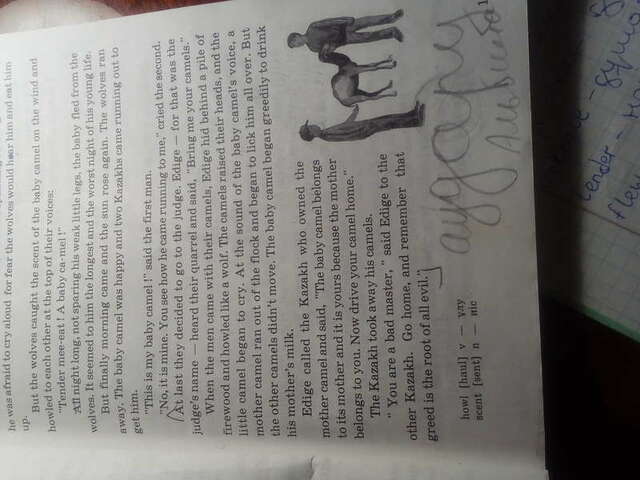 he was afraid to cry aloud for fear the wolves would hear him and eat him
up.
But the wolves caught the scent of the baby camel on the wind and
howled to each other at the top of their voices:
"Tender mee-eat ! A baby ca-mel !"
All night long, not sparing his weak little legs, the baby fled from the
wolves. It seemed to him the longest and the worst night of his young life.
But finally morning came and the sun rose again. The wolves ran
away. The baby camel was happy and two Kazakhs came running out to
get him.
"This is my baby camel !" said the first man.
"No, it is mine. You see how he came running to me," cried the second.
At last they decided to go to the judge. Edige — for that was the
judge's name — heard their quarrel and said, "Bring me your camels."
When the men came with their camels, Edige hid behind a pile of
firewood and howled like a wolf. The camels raised their heads, and the
little camel began to cry. At the sound of the baby camel's voice, a
mother camel ran out of the flock and began to lick him all over. But
the other camels didn't move. The baby camel began greedily to drink
his mother's milk.
Edige called the Kazakh who owned the
mother camel and said, "The baby camel belongs
to its mother and it is yours because the mother
belongs to you. Now drive your camel home."
The Kazakh took away his camels.
" You are a bad master, " said Edige to the
other Kazakh. Go home, and remember that
greed is the root of all evil."
аудару
howl [haul] v — ұлу
scent [sent] n — иіс
tender -